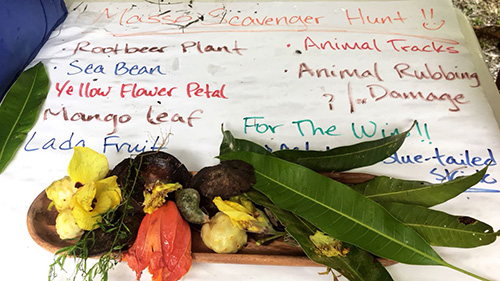 Masso Scavenger Hunt !!
· Rootbeer Plant
· Sea Bean
Yellow Flower Petal
Mango leaf
Lada Fruit
· Animal Tracks
· Animal Rubbing
? /or Damage
For The Win!!
Blue-tailed